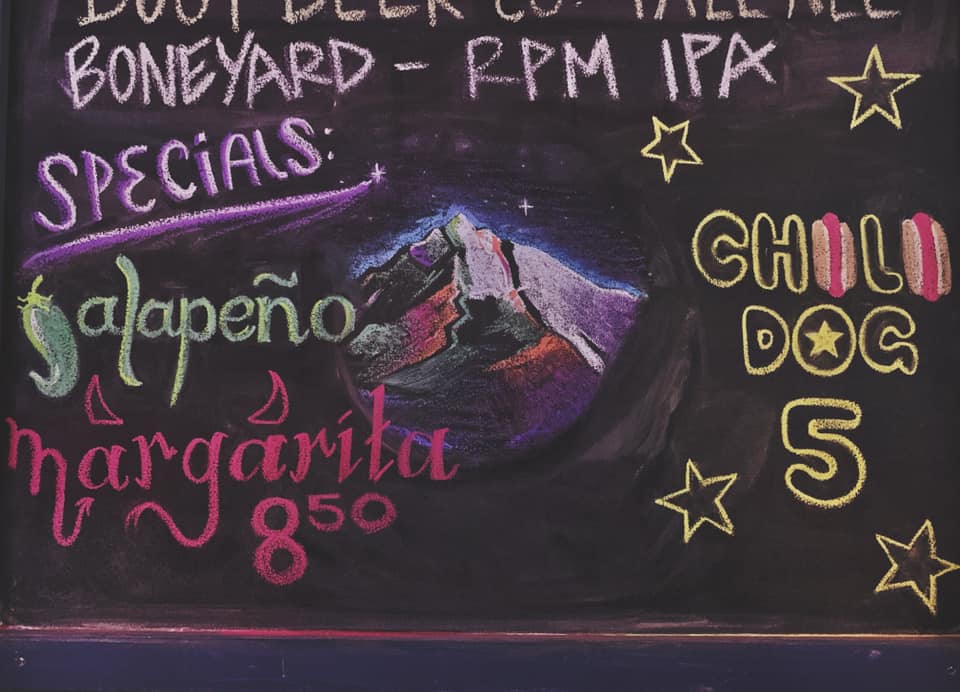 BUOY BEER CO. PALE ALE
BONEYARD - RPM IPA
SPECiALS:
Jalapeño
margarita
8 50
CHILI
DOG
5